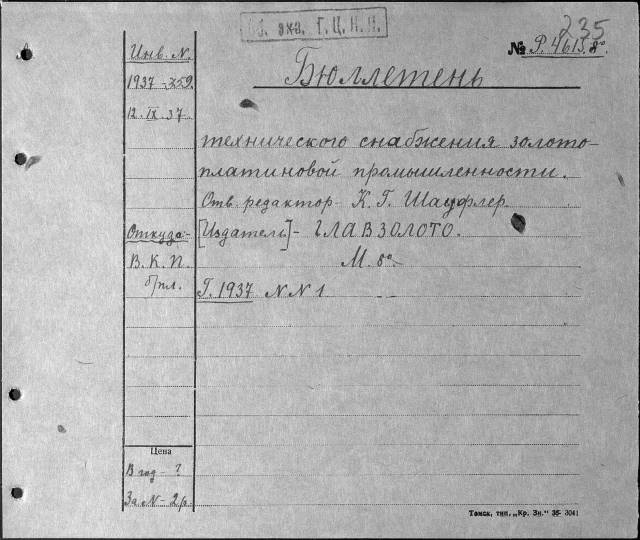 экз. Г.Ц.К.П.
235
№ Р. 4615. 8°
Инв. N.
1937 - 359.
12. IX. 37
Бюллетень
технического снабжения золото-
платиновой промышленности.
Отв. редактор К. Г. Шауфлер.
Откуда:-
[Издатель] - ГЛАВЗОЛОТО.
В. К. П.
М. 8°
б/пл.
Г. 1937 N N 1
Цена
В год - ?
За N - 2 р.
Томск, тип. „Кр. Зн." 35- 3041